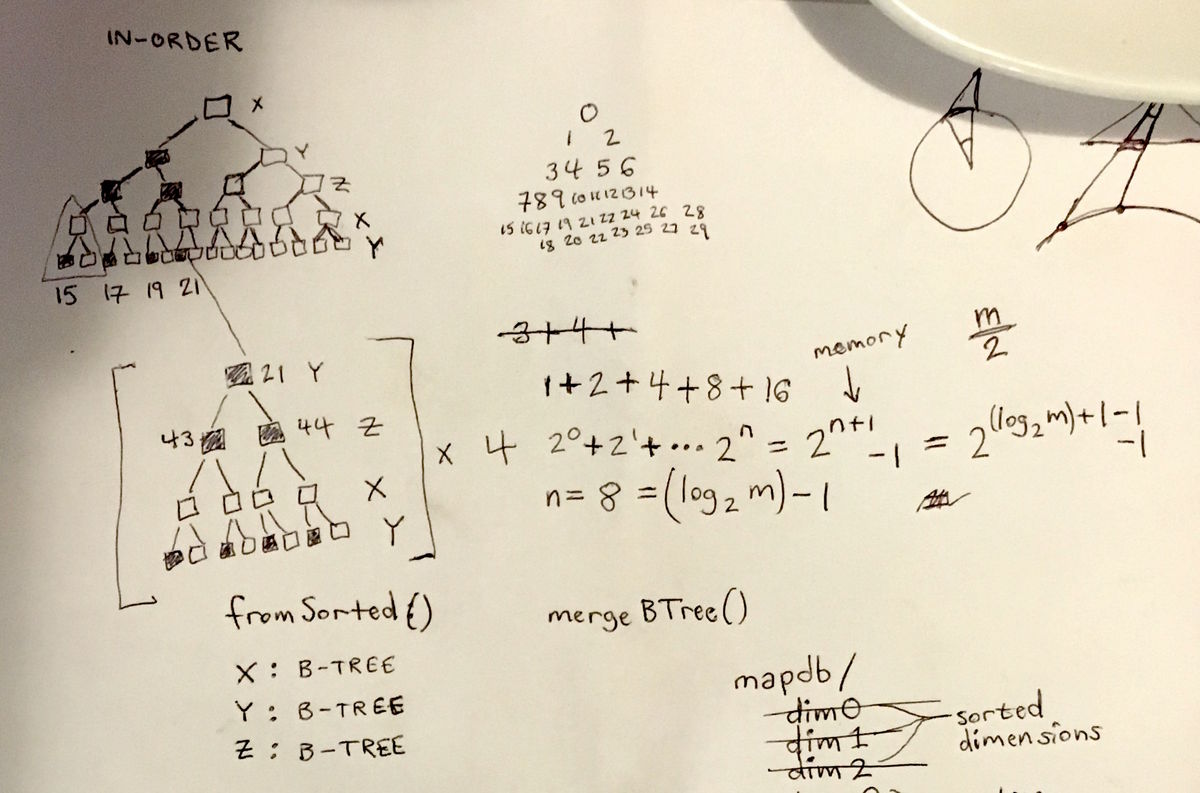 IN-ORDER
X
Y
Z
X
Y
15 17 19 21
0
1 2
3 4 5 6
7 8 9 10 11 12 13 14
15 16 17 19 21 22 24 26 28
18 20 22 23 25 27 29
21 Y
43 44 Z
X
Y
x 4
3 + 4 +
1 + 2 + 4 + 8 + 16
memory
m/2
2⁰ + 2¹ + ... 2ⁿ = 2ⁿ⁺¹ - 1 = 2^(log₂m)+1-1 - 1
n = 8 = (log₂ m) - 1
fromSorted()
mergeBTree()
X : B-TREE
Y : B-TREE
Z : B-TREE
mapdb/
dim0
dim1
dim2
sorted
dimensions